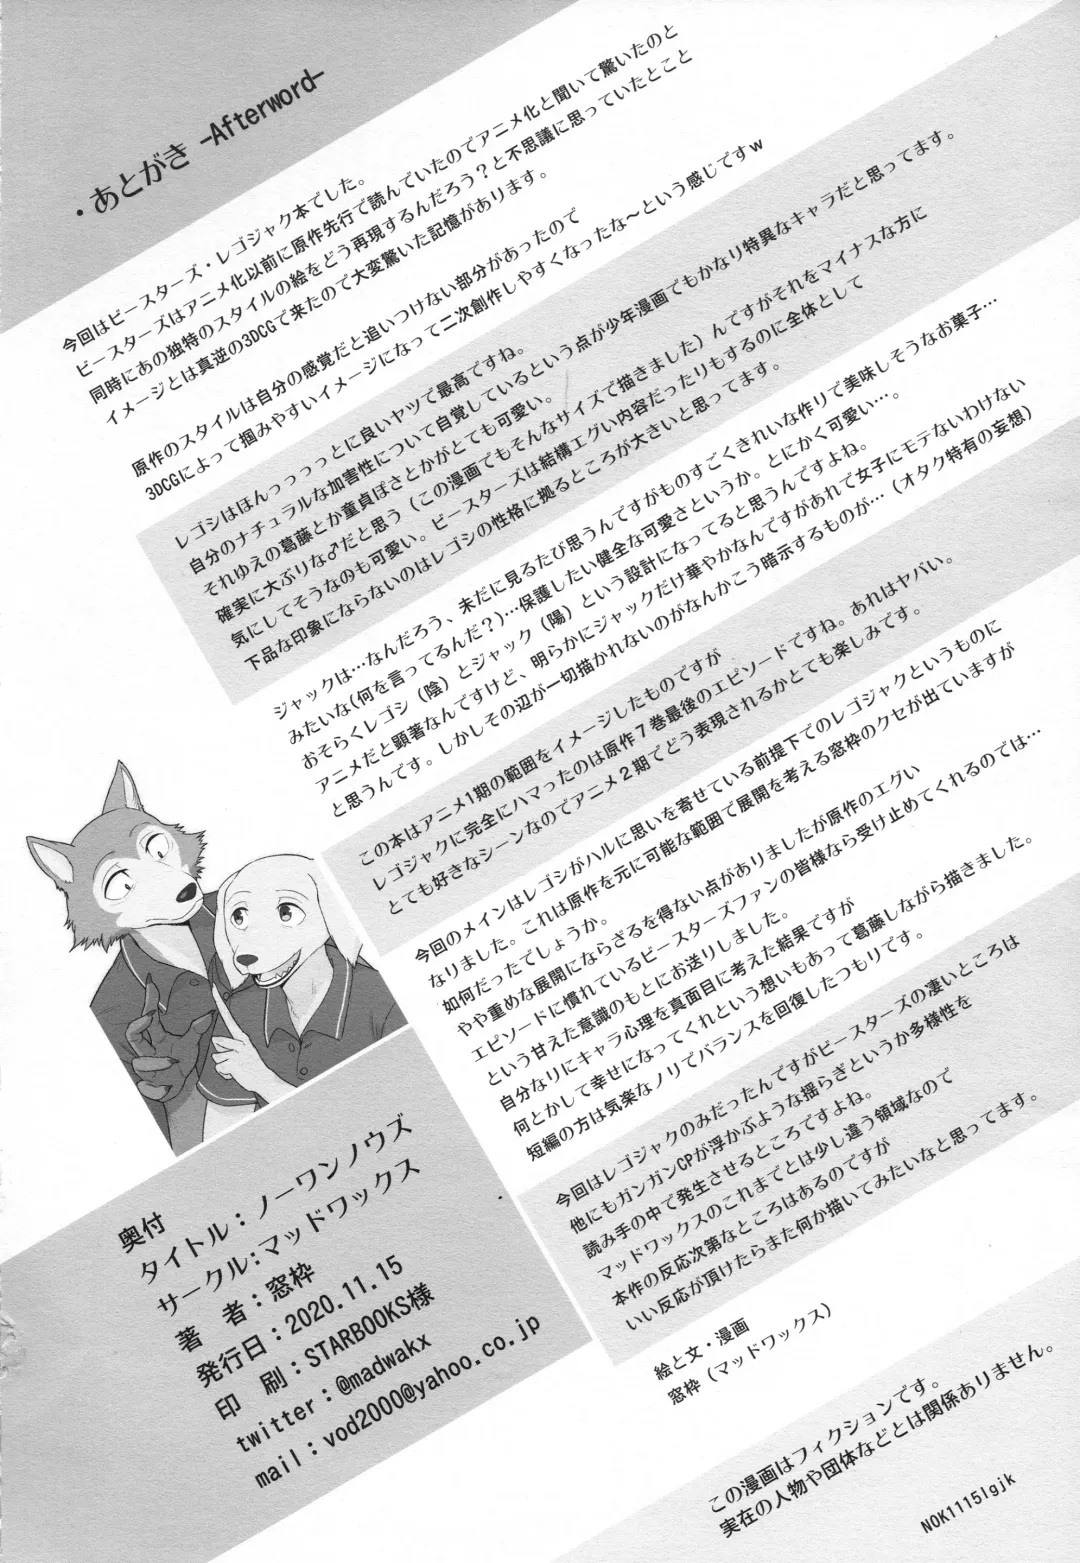 ・あとがき -Afterword-
今回はビースターズ・レゴジャク本でした。
ビースターズはアニメ化以前に原作先行で読んでいたのでアニメ化と聞いて驚いたのと
同時にあの独特のスタイルの絵をどう再現するんだろう？と不思議に思っていたとこと
イメージとは真逆の3DCGで来たので大変驚いた記憶があります。
原作のスタイルは自分の感覚だと追いつけない部分があったので
3DCGによって掴みやすいイメージになって二次創作しやすくなったな～という感じですｗ
レゴシはほんっっっっとに良いヤツで最高ですね。
自分のナチュラルな加害性について自覚しているという点が少年漫画でもかなり特異なキャラだと思ってます。
それゆえの葛藤とか童貞ぽさとかがとても可愛い。
確実に大ぶりな♂だと思う（この漫画でもそんなサイズで描きました）んですがそれをマイナスな方に
気にしてそうなのも可愛い。ビースターズは結構エグい内容だったりもするのに全体として
下品な印象にならないのはレゴシの性格に拠るところが大きいと思ってます。
ジャックは…なんだろう、未だに見るたび思うんですがものすごくきれいな作りで美味しそうなお菓子…
みたいな(何を言ってるんだ？)…保護したい健全な可愛さというか。とにかく可愛い…。
おそらくレゴシ（陰）とジャック（陽）という設計になってると思うんですよね。
アニメだと顕著なんですけど、明らかにジャックだけ華やかなんですがあれで女子にモテないわけない
と思うんです。しかしその辺が一切描かれないのがなんかこう暗示するものが…（オタク特有の妄想）
この本はアニメ1期の範囲をイメージしたものですが
レゴジャクに完全にハマったのは原作７巻最後のエピソードですね。あれはヤバい。
とても好きなシーンなのでアニメ２期でどう表現されるかとても楽しみです。
今回のメインはレゴシがハルに思いを寄せている前提下でのレゴジャクというものに
なりました。これは原作を元に可能な範囲で展開を考える窓枠のクセが出ていますが
如何だったでしょうか。
やや重めな展開にならざるを得ない点がありましたが原作のエグい
エピソードに慣れているビースターズファンの皆様なら受け止めてくれるのでは…
という甘えた意識のもとにお送りしました。
自分なりにキャラ心理を真面目に考えた結果ですが
何とかして幸せになってくれという想いもあって葛藤しながら描きました。
短編の方は気楽なノリでバランスを回復したつもりです。
今回はレゴジャクのみだったんですがビースターズの凄いところは
他にもガンガンCPが浮かぶような揺らぎというか多様性を
読み手の中で発生させるところですよね。
マッドワックスのこれまでとは少し違う領域なので
本作の反応次第なところはあるのですが
いい反応が頂けたらまた何か描いてみたいなと思ってます。
絵と文・漫画
窓枠（マッドワックス）
奥付
タイトル：ノーワンノウズ
サークル：マッドワックス
著　者：窓枠
発行日：2020.11.15
印　刷：STARBOOKS様
twitter：@madwakx
mail：vod2000@yahoo.co.jp
この漫画はフィクションです。
実在の人物や団体などとは関係ありません。
NOK1115lgjk